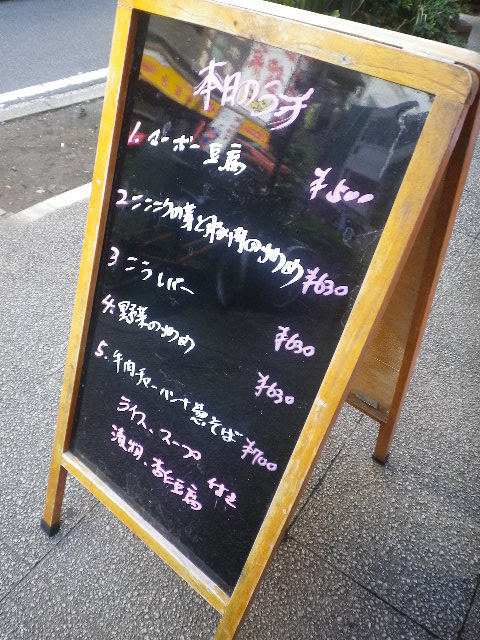 本日のランチ
1. マーボー豆腐 ¥500
2 ニンニクの芽と豚肉の炒め ¥630
3 ニラレバー ¥630
4. 野菜の炒め ¥630
5. 牛肉チャーハン+葱そば ¥700
ライス、スープ
漬物、杏仁豆腐 付き